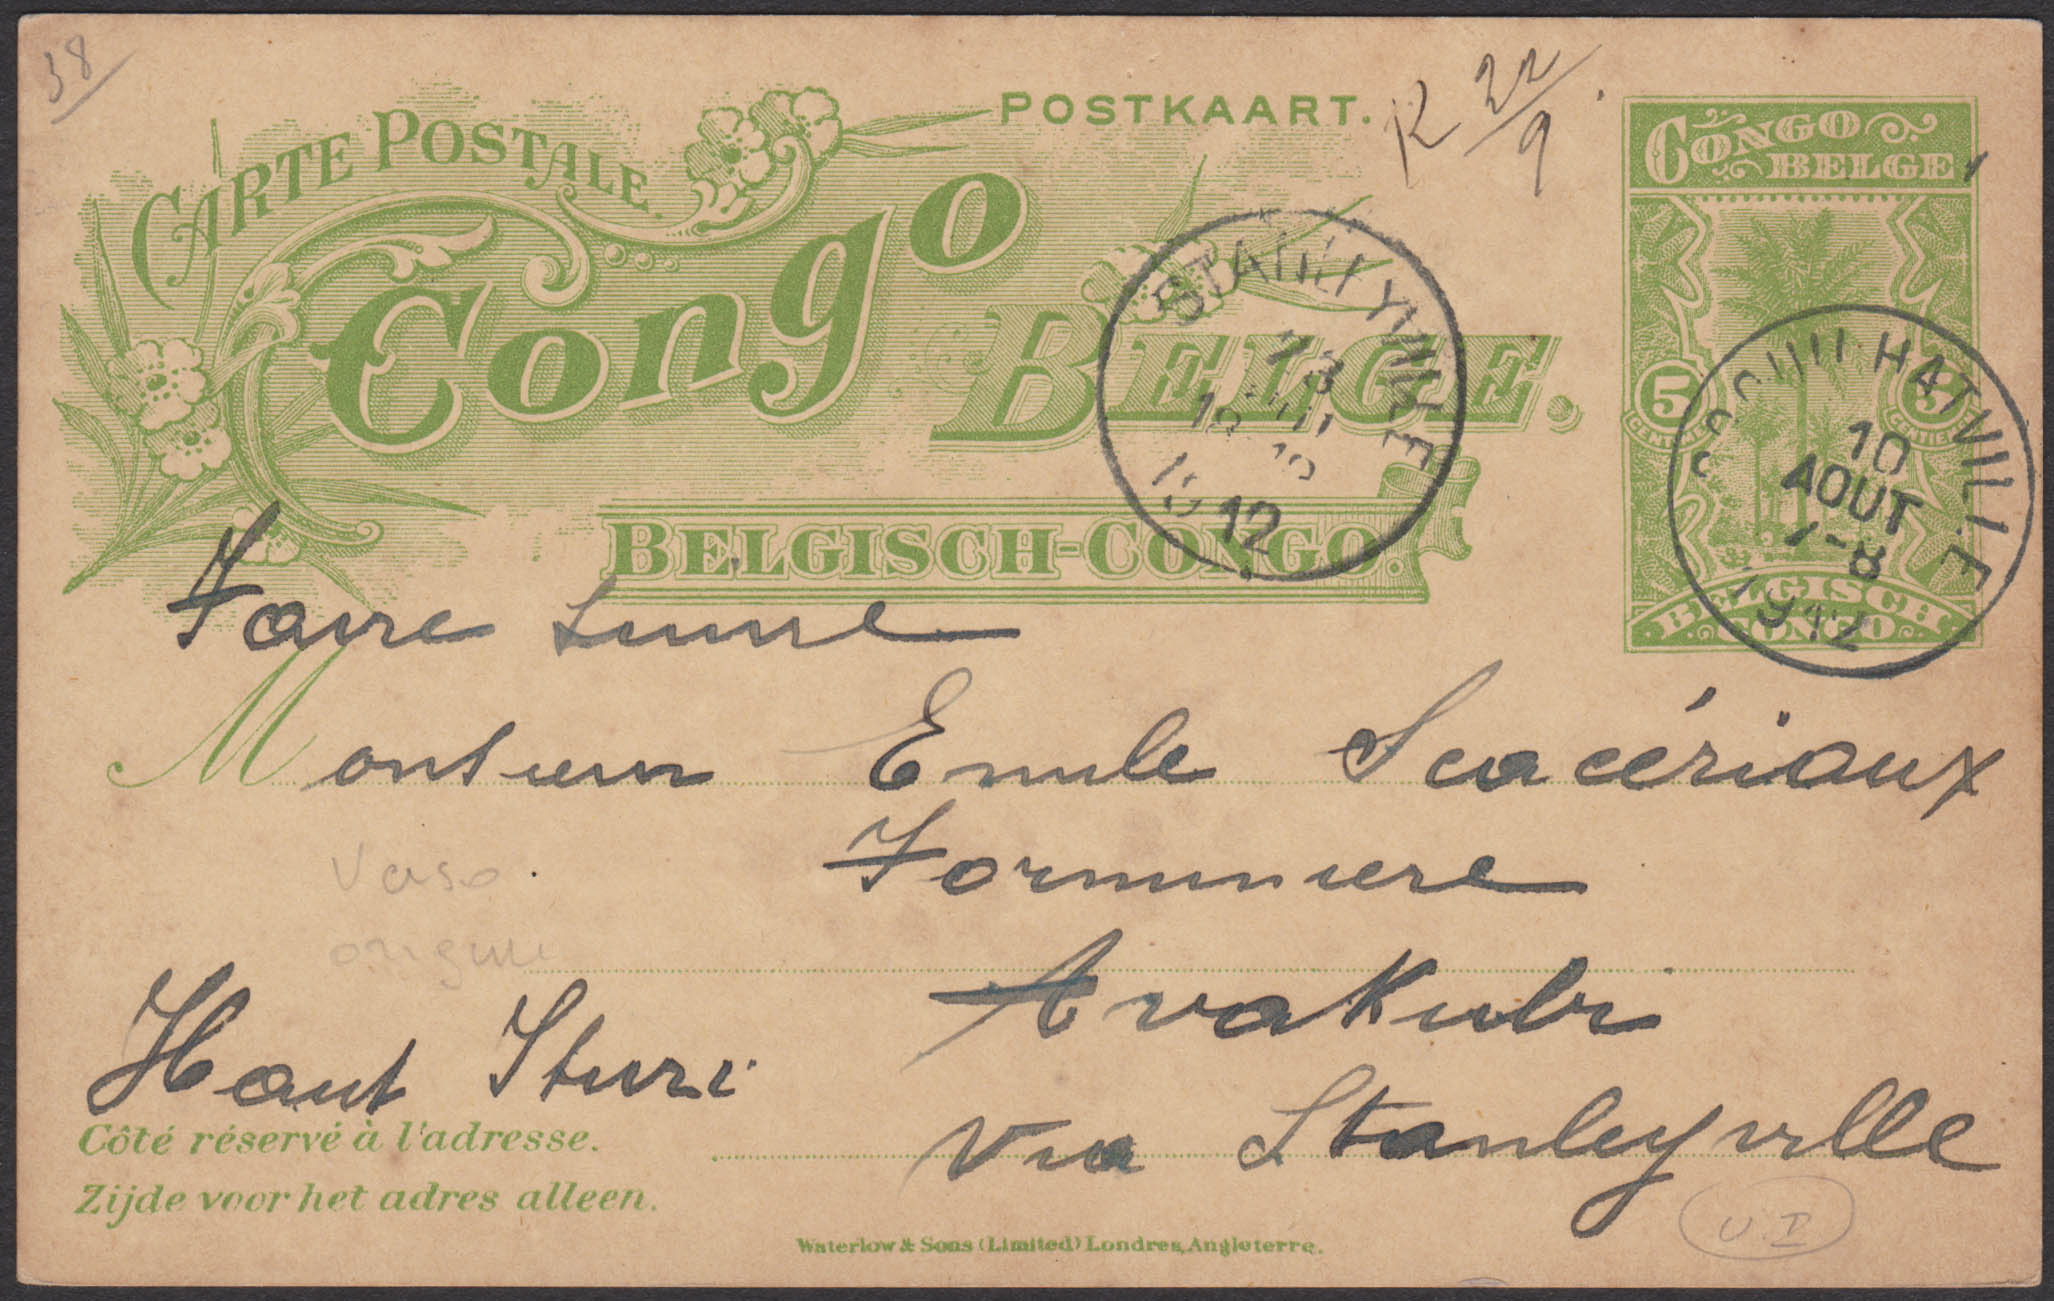 38
CARTE POSTALE.
POSTKAART.
R 22/9.
Congo
BELGE.
BELGISCH-CONGO.
CONGO
BELGE
5 5
CENTIMES CENTIEMEN
BELGISCH
CONGO
STANLEYVILLE
1912
COQUILHATVILLE
10
AOUT
7-8
1912
Faire suivre
Monsieur Emile Scacériaux
Forminiere
Avakubi
Haut Ituri
via Stanleyville
origine
Côté réservé à l'adresse.
Zijde voor het adres alleen.
Waterlow & Sons (Limited) Londres, Angleterre.